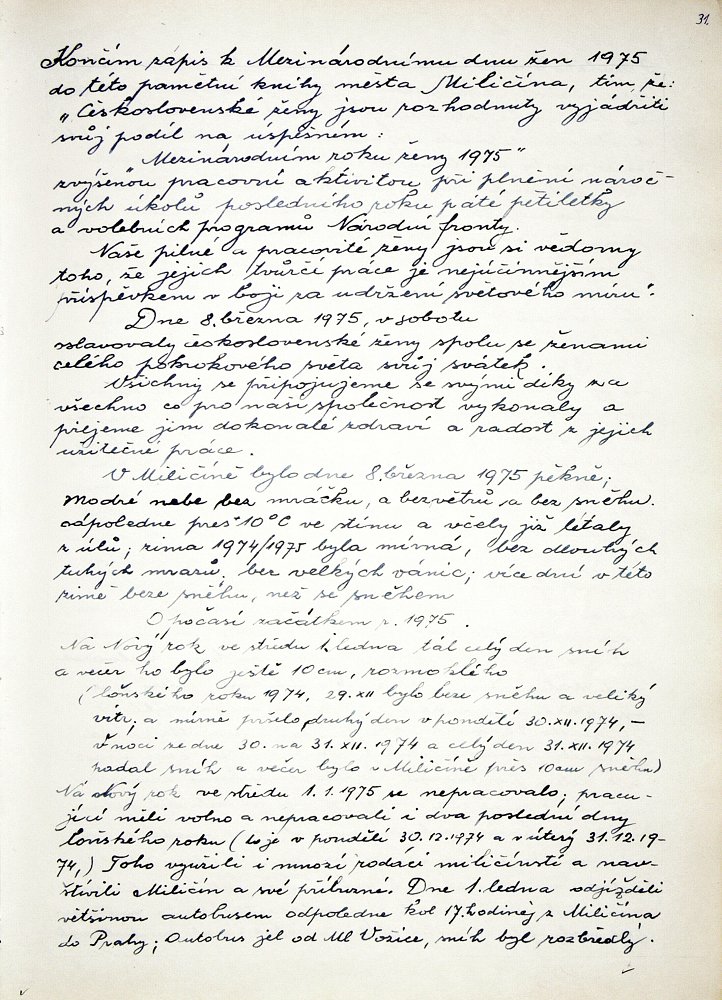 31.
Končím zápis k Mezinárodnímu dnu žen 1975
do této pamětní knihy města Miličína, tím, že:
"Československé ženy jsou rozhodnuty vyjádřiti
svůj podíl na úspěšném:
Mezinárodním roku ženy 1975"
zvýšenou pracovní aktivitou při plnění nároč-
ných úkolů posledního roku páté pětiletky
a volebních programů Národní fronty.
Naše pilné a pracovité ženy jsou si vědomy
toho, že jejich tvůrčí práce je nejúčinnějším
příspěvkem v boji za udržení světového míru".
Dne 8. března 1975, v sobotu
oslavovaly československé ženy spolu se ženami
celého pokrokového světa svůj svátek.
Všichni se připojujeme se svými díky za
všechno co pro naši společnost vykonaly a
přejeme jim dokonalé zdraví a radost z jejich
užitečné práce.
V Miličíně bylo dne 8. března 1975 pěkně;
modré nebe bez mráčku, a bezvětrů a bez sněhu.
odpoledne přes 10°C ve stínu a včely již létaly
z úlů; zima 1974/1975 byla mírná, bez dlouhých
tuhých mrazů, bez velkých vánic; více dní v této
zimě beze sněhu, než se sněhem
O počasí začátkem r. 1975.
Na Nový rok ve středu 1. ledna tál celý den sníh
a večer ho bylo ještě 10 cm, rozmoklého
(loňského roku 1974, 29. XII bylo beze sněhu a veliký
vítr; a mírně pršelo, druhý den v pondělí 30. XII. 1974, –
v noci ze dne 30. na 31. XII. 1974 a celý den 31. XII. 1974
padal sníh a večer bylo v Miličíně přes 10 cm sněhu)
Na Nový rok ve středu 1. 1. 1975 se nepracovalo; pracu-
jící měli volno a nepracovali i dva poslední dny
loňského roku (to je v pondělí 30. 12. 1974 a v úterý 31. 12. 19-
74,) Toho využili i mnozí rodáci miličínští a nav-
štívili Miličín a své příbuzné. Dne 1. ledna odjížděli
většinou autobusem odpoledne kol 17. hodiněj z Miličína
do Prahy; Autobus jel od Ml Vožice, sníh byl rozbředlý.